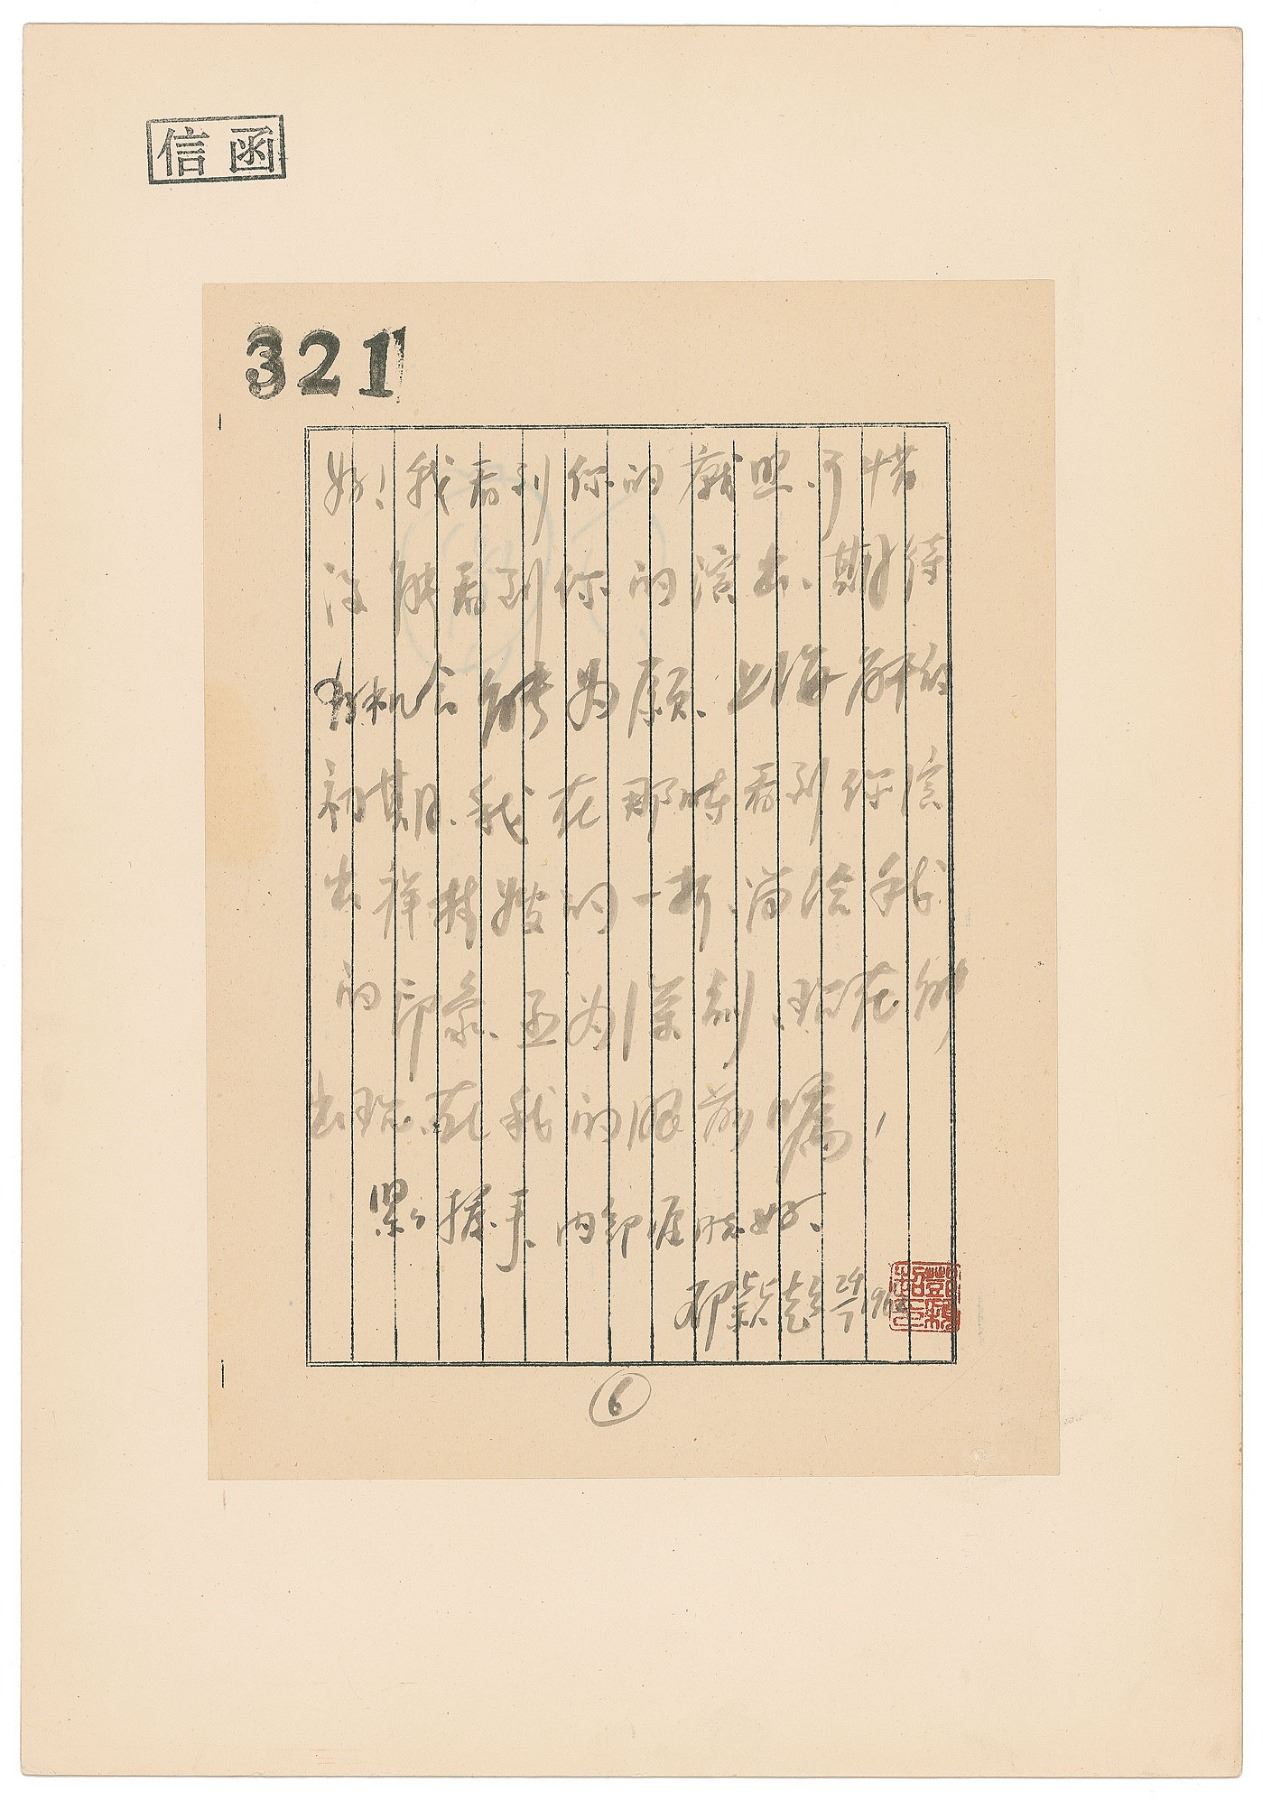 信函
321
好！我看到你的戲照、可惜
没能看到你的演出、期待
有机会能为願、上海解放
初期、我在那时看到你演
出祥林嫂的一折、尚给我
的印象、至为深刻、现在能
出现在我的眼前嘱！
紧紧握手、内部
邓颖超
6